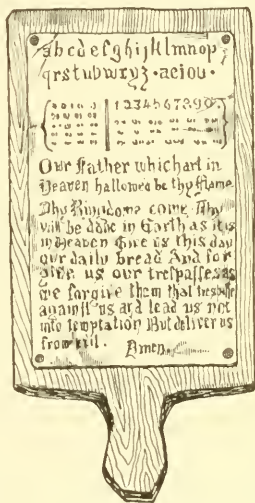 abcdefghijklmnop
qrstubwxyz · aeiou ·
1234567890.
Our Father which art in
Heaven hallowed be thy Name
Thy Kingdome come Thy
will be done in Earth as it is
in Heaven Give us this day
our daily bread And for
give us our trespasses as
we forgive them that trespasse
against us and lead us not
into temptation But deliver us
from evil. Amen.